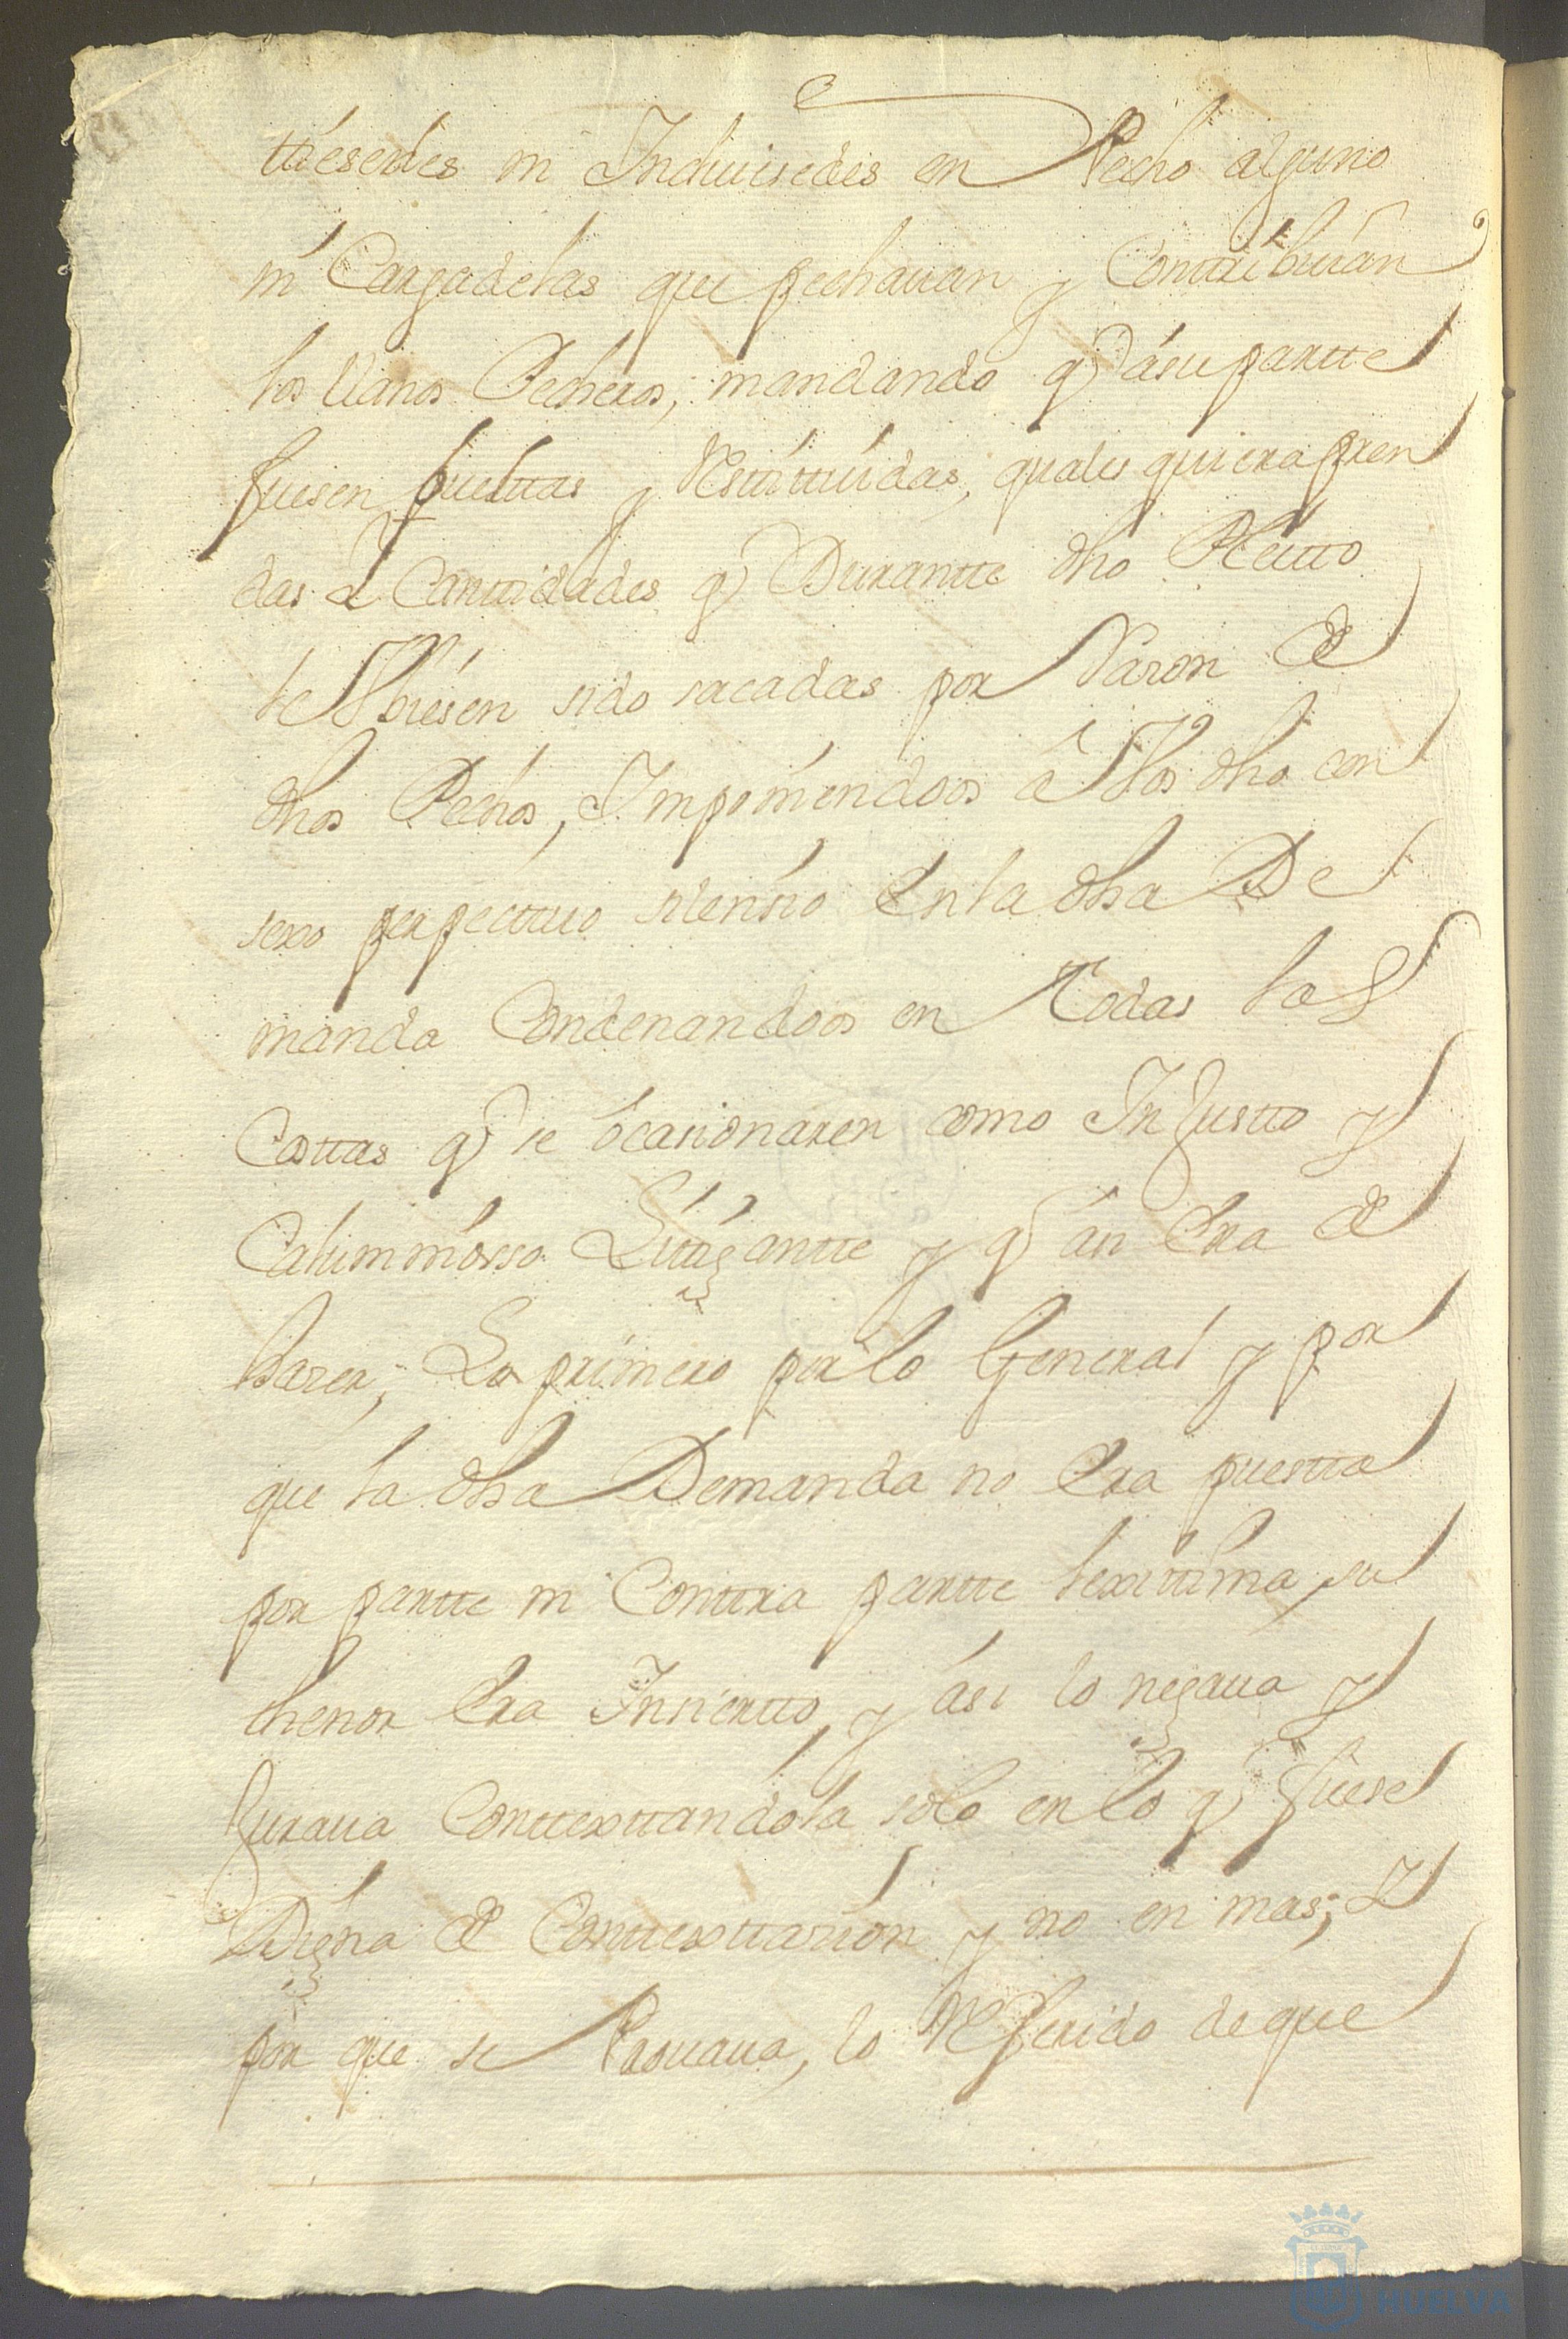 ttiesedes ni Induuisedes en Pecho alguno
ni Cargadelas que pechauan y Contribuian
los llanos Pecheros; mandando q̃ a su partte
fuesen bueltas y Restittuidas, quales quiera pren
das & Canttidades q̃ Durantte dho Pleitto
le Vbiesen sido sacadas por Razon de
dhos Pechos, Imponiendoos â Vos dho con
sexo perpettuo silensio En la dha De
manda Condenandoos en Todas las
Costtas q̃ se ôcasionaren como Injustto y
Calumniosso Littigantte y q̃ asi Era de
hazer; Lo primero por lo General y por
que la dha Demanda no Era puestta
por partte ni Conttra partte lexittima, su
thenor Era Insiertto, y asi lo negaua y
Juraua Conttexttandola solo en lo q̃ fuese
Digna de Conttexttazion y no en mas; Y
por que se Prouaua, lo Referido de que
HUELVA